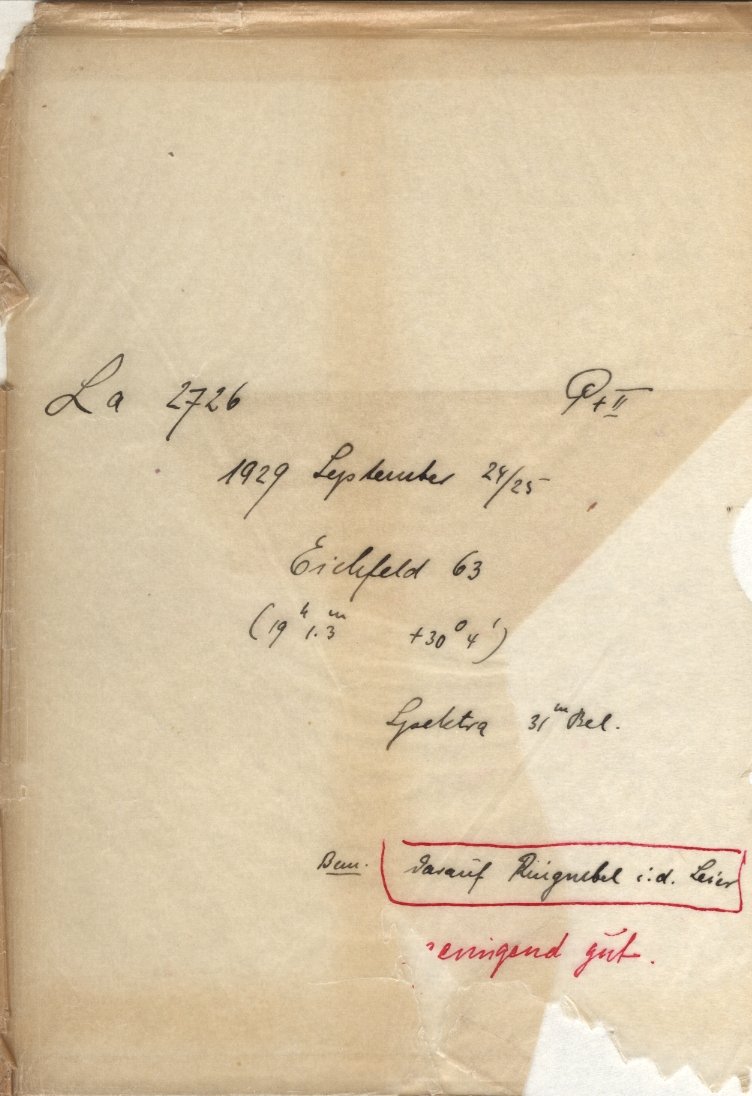 La 2726 P+II
1929 September 24/25
Eichfeld 63
(19ʰ 1.3ᵐ +30° 4')
Spektra 31ᵐ Bel.
Bem. darauf Ringnebel i.d. Leier
gut.